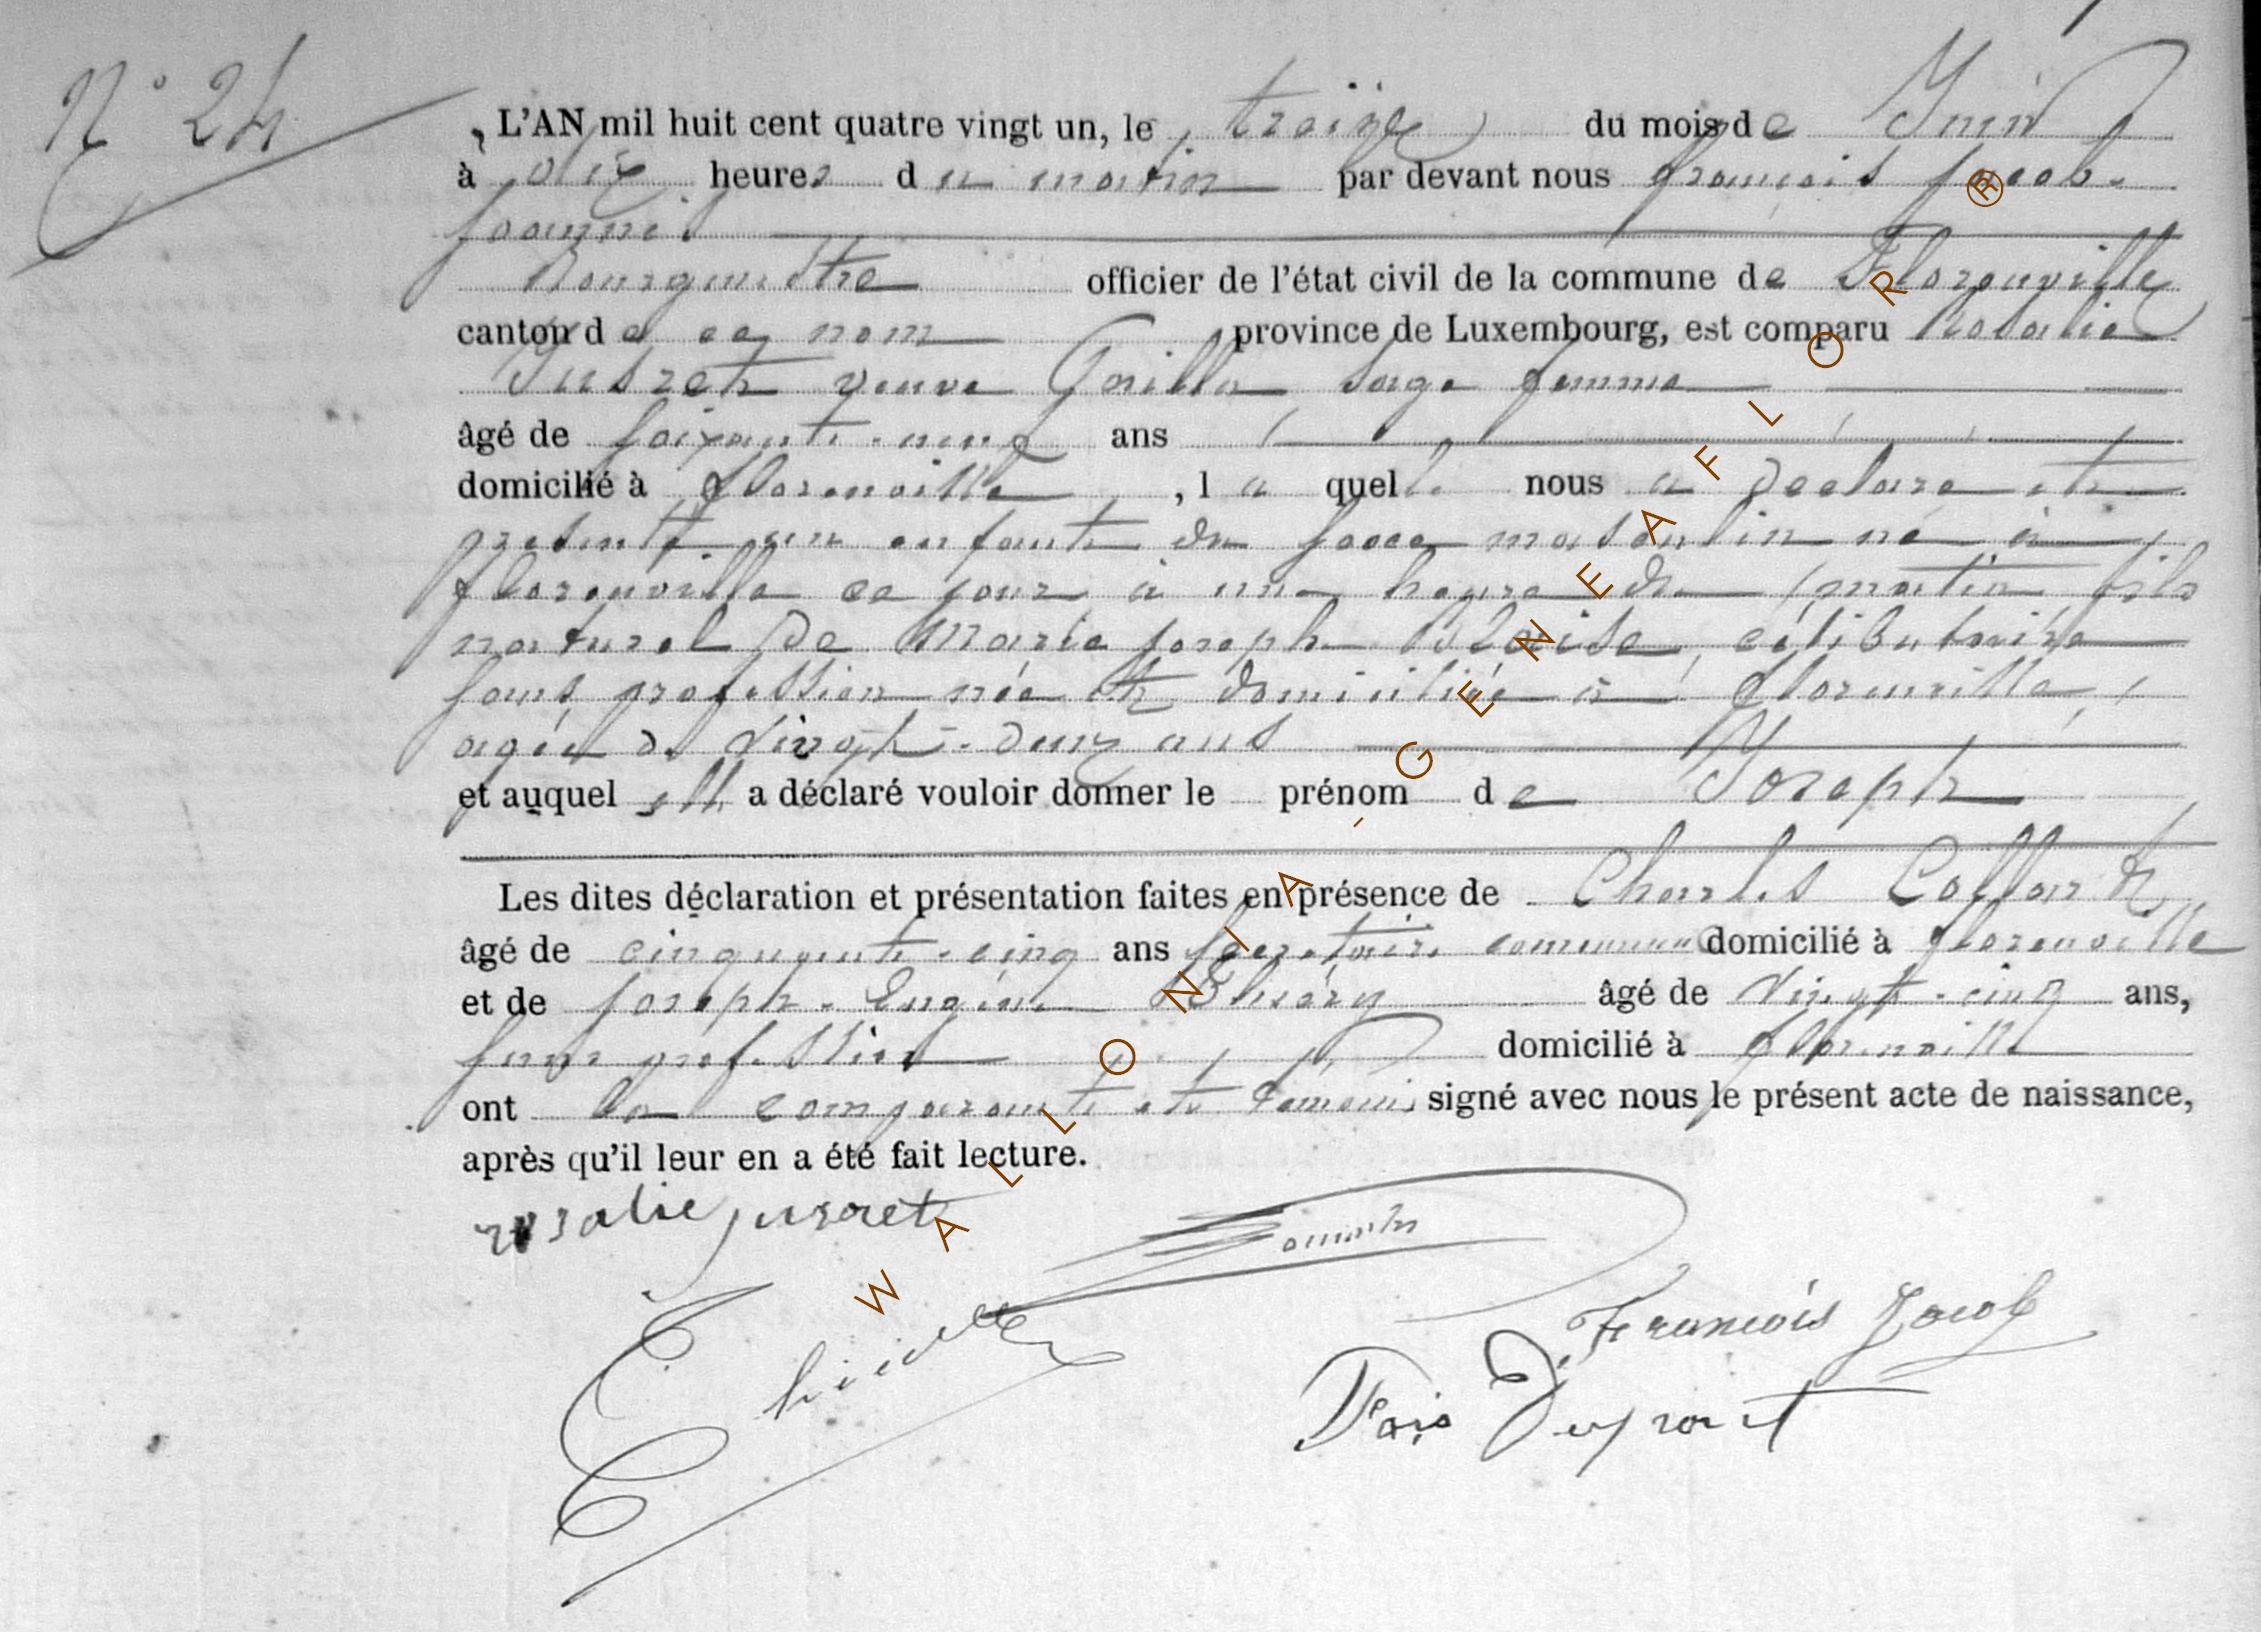 N° 24
L'AN mil huit cent quatre vingt un, le treize du mois de Juin
à dix heures du matin par devant nous françois Jacob
Joannès
Bourgmestre officier de l'état civil de la commune de Florenville
canton de ce nom province de Luxembourg, est comparu Rosalie
Jusret veuve sage femme
âgé de soixante-neuf ans
domicilié à florenville, laquelle nous a déclaré et
présenté un enfant du sexe masculin né à
florenville ce jour à une heure du matin fils
naturel de Marie Joseph Blaise, célibataire
sans profession née et domiciliée à florenville,
agée de vingt-deux ans
et auquel elle a déclaré vouloir donner le prénom de Joseph
Les dites déclaration et présentation faites en présence de Charles
âgé de cinquante-cinq ans secretaire communal domicilié à florenville
et de Joseph-Eugène âgé de vingt-cinq ans,
sans profession domicilié à florenville
ont la comparante et temoins signé avec nous le présent acte de naissance,
après qu'il leur en a été fait lecture.
rosalie jusret
François Jacob
WALLONIA-GENEAFLOR ®